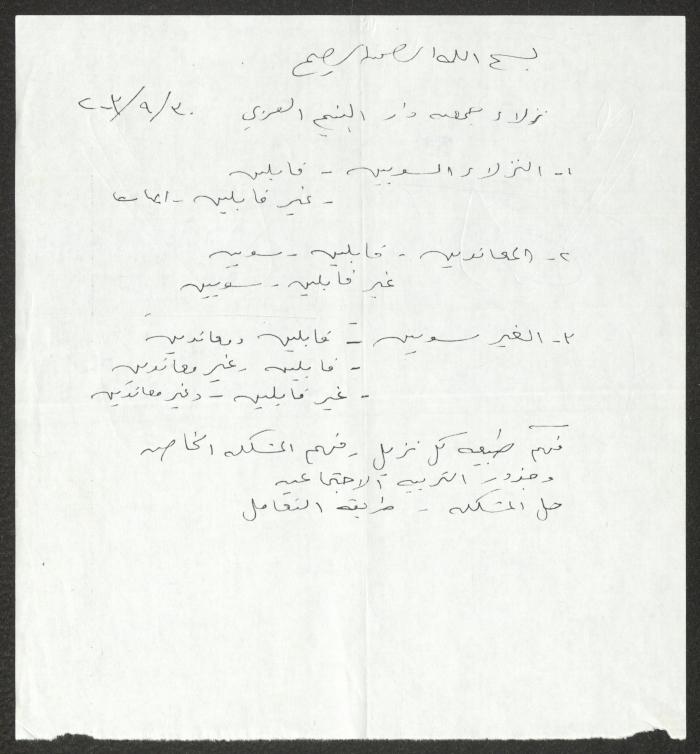 بسم الله الرحمن الرحيم
نزلاء جمعية دار اليتيم العربي ٢٠٠٣/٩/٣٠
١- النزلاء السويين - قابلين
- غير قابلين -
٢- المعاندين - قابلين - سويين
غير قابلين - سويين
٣- الغير سويين - قابلين ومعاندين
- قابلين وغير معاندين
- غير قابلين - وغير معاندين
فهم طبيعة كل نزيل - فهم المشكلة الخاصة
وجذور التربية الاجتماعية
حل المشكلة - طريقة التعامل